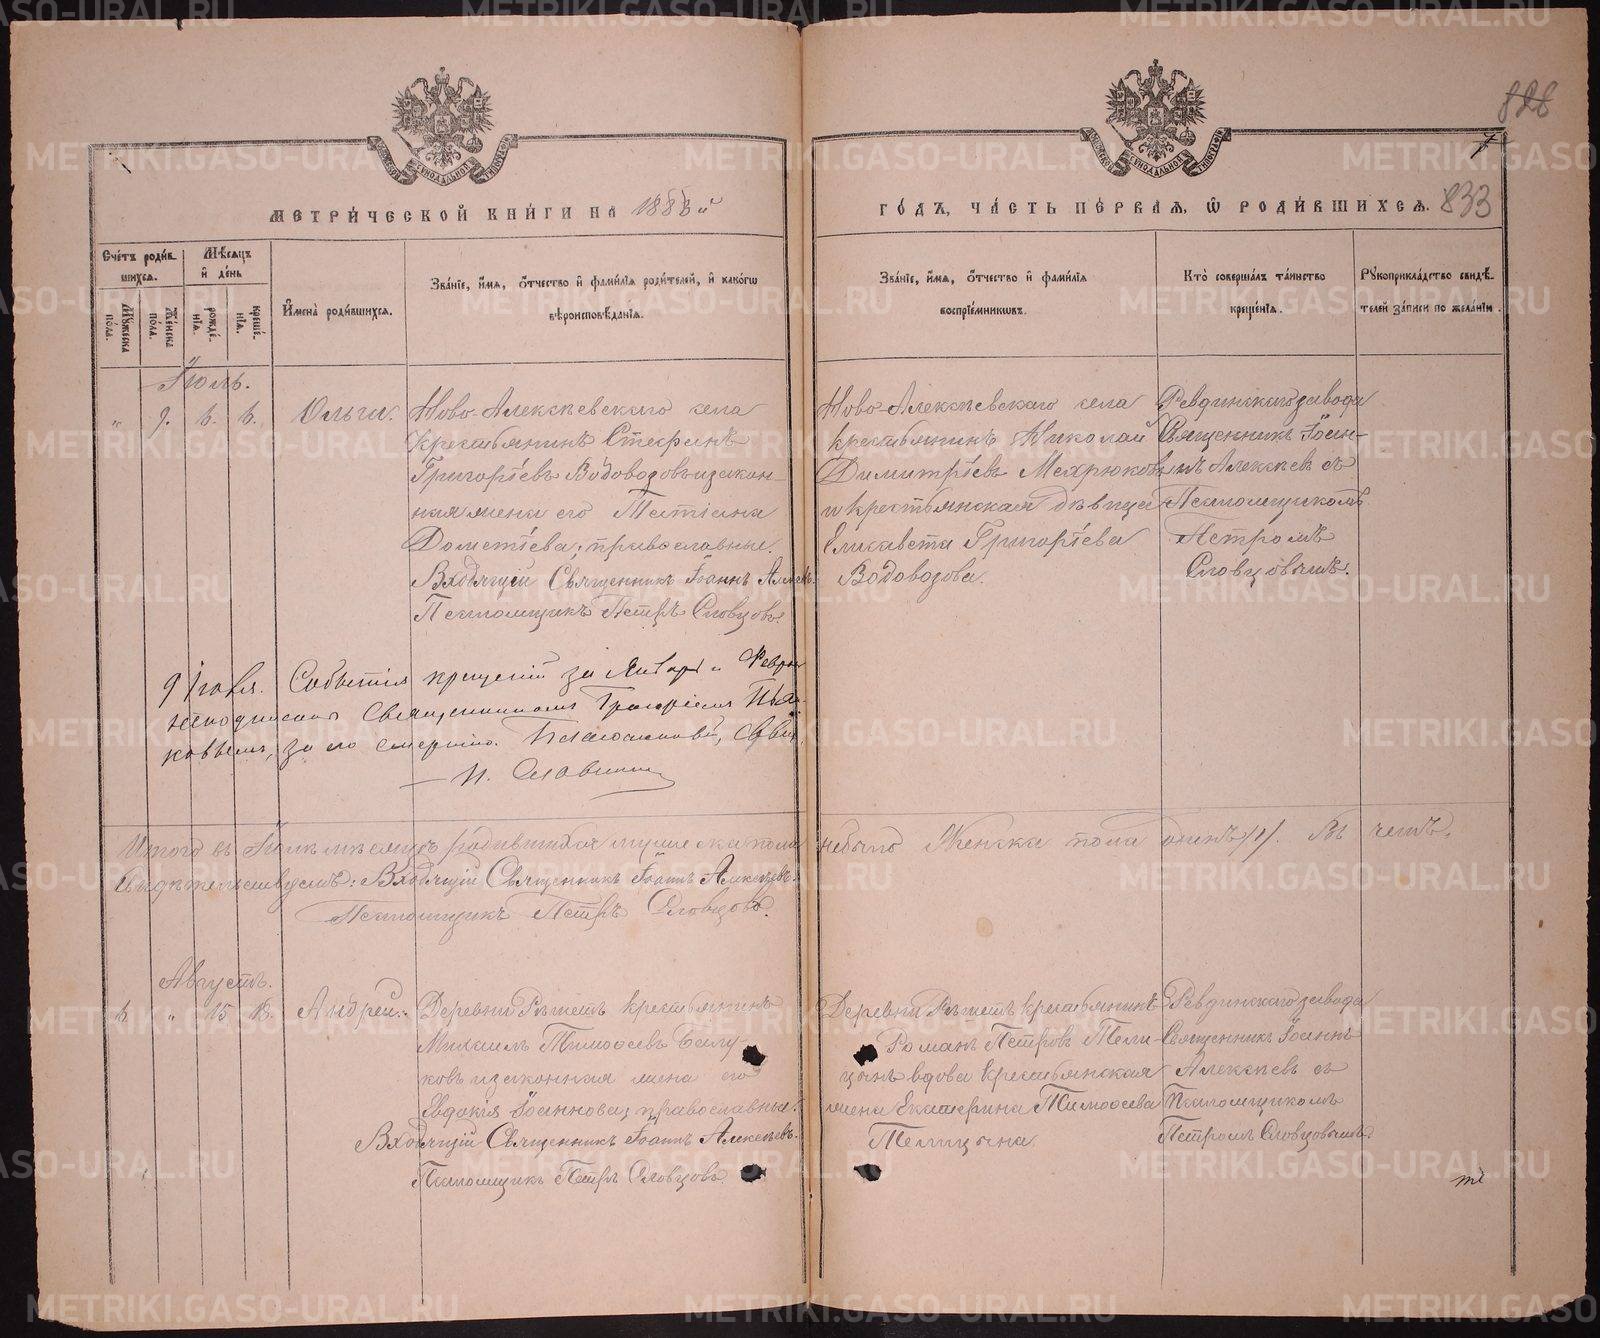 828
МЕТРИ́ЧЕСКОЙ КНИ́ГИ НА 1883й
ГО́ДЪ, ЧА́СТЬ ПЕ́РВАЯ, Ѡ РОДИ́ВШИХСЯ. 833
Сче́тъ роди́вшихся.
Мѣ́сяцъ и́ де́нь
Му́жеска по́ла.
Же́нска по́ла.
рожде́нія.
креще́нія.
И́мена̀ роди́вшихся.
Зва́ніе, и́мя, о́тчество и́ фами́лія роди́телей, и́ како́гѡ вѣроисповѣ́данія.
Зва́ніе, и́мя, о́тчество и́ фами́лія воспріе́мниковъ.
Кто̀ соверша́лъ та́инство креще́нія.
Рукоприкла́дство свидѣ́телей за́писи по жела́нію.
Іюль.
" 9. 6. 6. Ольги.
Ново-Алексѣевскаго села
крестьянинъ Стефанъ
Григоріевъ Водовозовъ изакон-
ная жена его Татіана
Дометіева; православные.
Входящій Священникъ Іоаннъ Алексѣ.
Псаломщикъ Петръ Словцовъ.
Ново-Алексѣевскаго села
крестьянинъ Николай
Димитріевъ Мехрюковъ
и крестьянская дѣвица
Елисавета Григоріева
Водовозова.
Ревдинскаго завода
Священникъ Іоан-
нъ Алексѣевъ съ
Псаломщикомъ
Петромъ
Словцовымъ.
9 Іюля. Событія крещеній за Январь и Февра
неподписаны Священникомъ Григоріемъ
ковымъ, за его смертію. Благочинный, Свящ.
Итого въ Іюлѣ мѣсяцѣ родившихся мужеска пола небыло Женска пола одинъ /1/. Въ чемъ.
Свидѣтельствуемъ: Входящій Священникъ Іоаннъ Алексѣевъ.
Псаломщикъ Петръ Словцовъ.
Августъ.
6 " 15 18. Андрей.
Деревни Рѣшетъ крестьянинъ
Михаилъ Тимоѳеевъ Балу-
ковъ изаконная жена его
Евдокія Іоаннова; православные.
Входящій Священникъ Іоаннъ Алексѣевъ.
Псаломщикъ Петръ Словцовъ.
Деревни Рѣшетъ крестьянинъ
Романъ Петровъ Тели-
цынъ вдова крестьянская
жена Екатерина Тимоѳеева
Телицына.
Ревдинскаго завода
Священникъ Іоаннъ
Алексѣевъ съ
Псаломщикомъ
Петромъ Словцовымъ.
METRIKI.GASO-URAL.RU